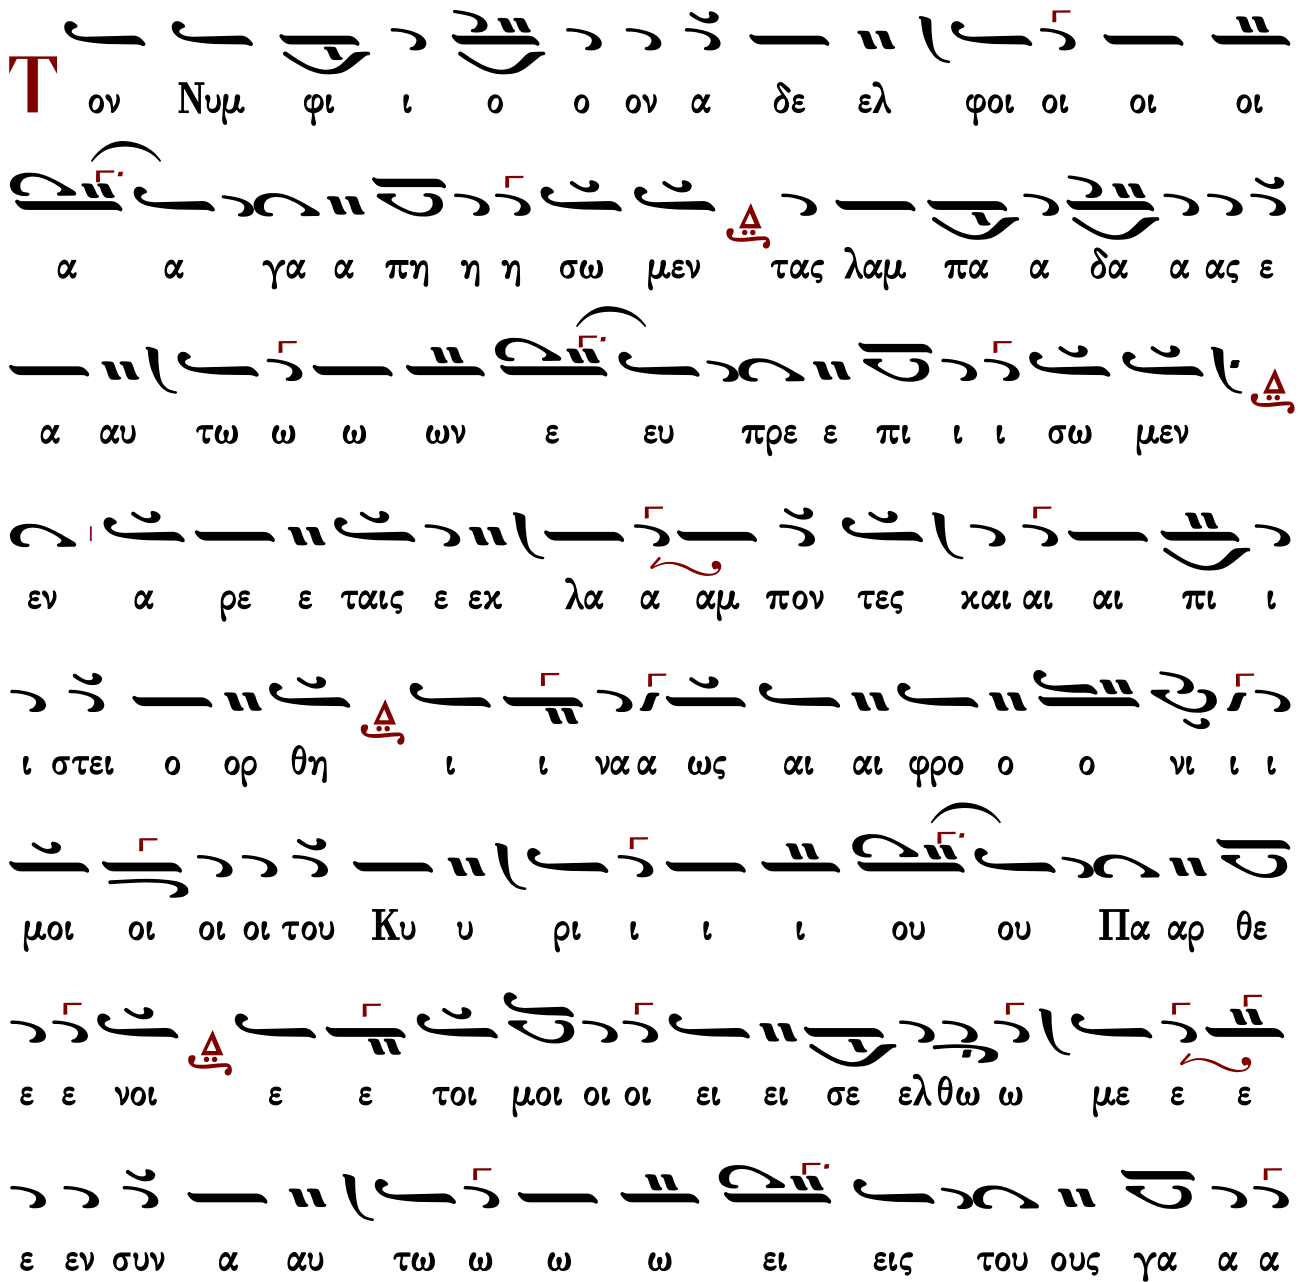 Τ ον Νυμ φι ι ο ο ον α δε ελ φοι οι οι οι
α α γα α πη η η σω μεν τας λαμ πα α δα α ας ε
α αυ τω ω ω ων ε ευ πρε ε πι ι ι σω μεν
εν α ρε ε ταις ε εκ λα α αμ πον τες και αι αι πι ι
ι στει ο ορ θη ι ι να α ως αι αι φρο ο ο νι ι ι
μοι οι οι οι του Κυ υ ρι ι ι ι ου ου Πα αρ θε
ε ε νοι ε ε τοι μοι οι οι ει ει σε ελ θω ω με ε ε
ε εν συν α αυ τω ω ω ω ει εις του ους γα α α